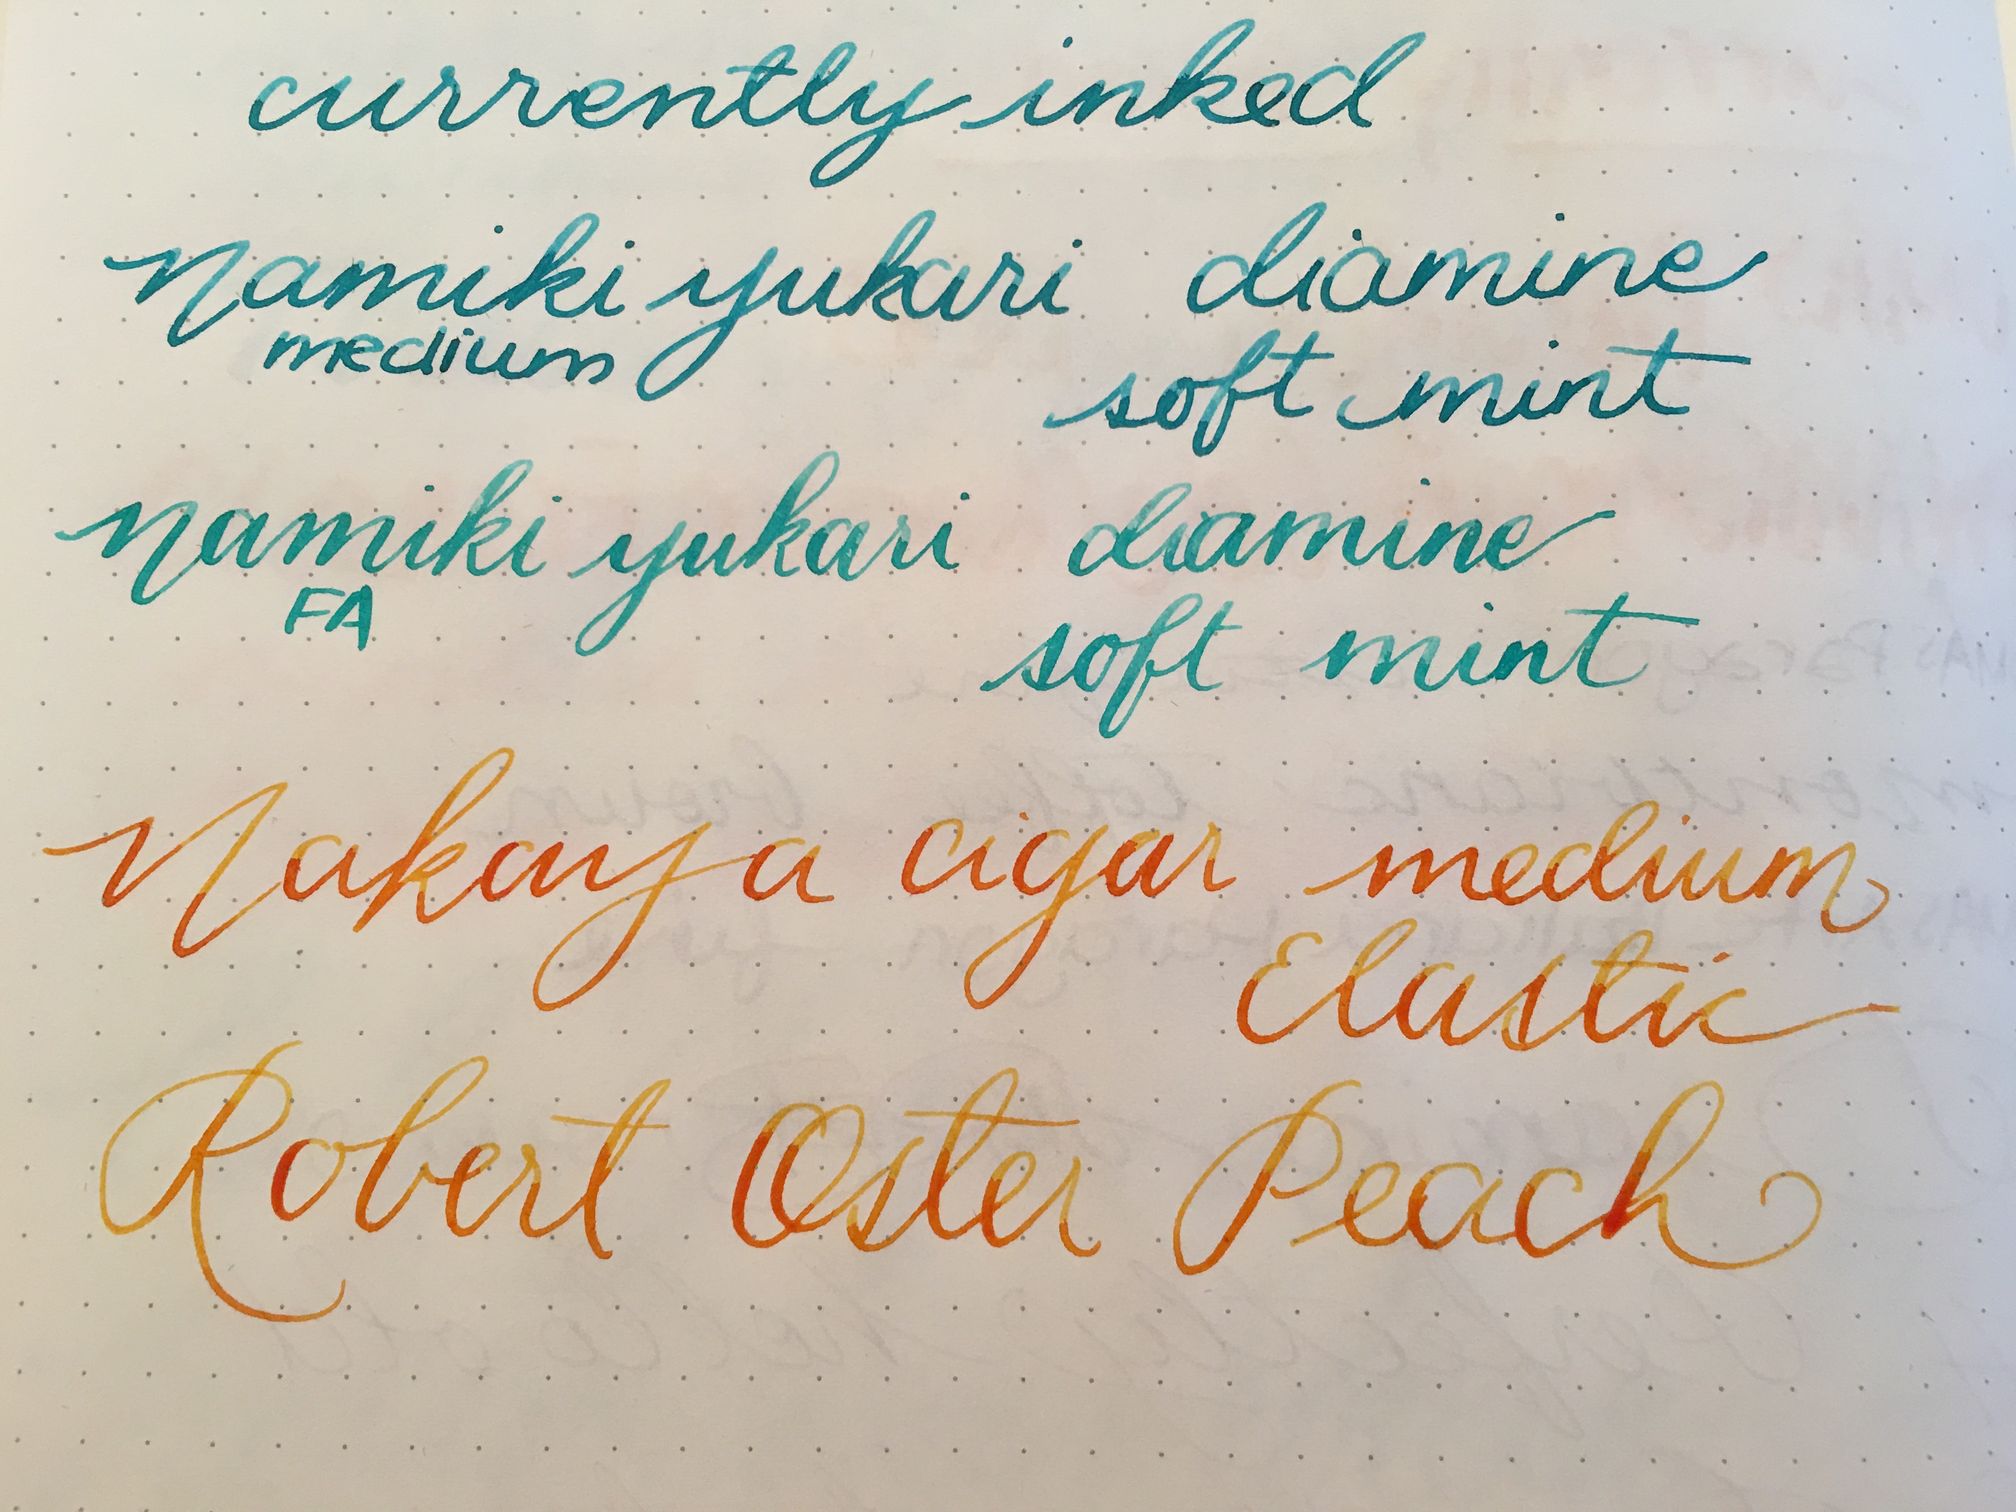 currently inked
Namiki yukari diamine
medium
soft mint
Namiki yukari diamine
FA
soft mint
Nakaya cigar medium
Elastic
Robert Oster Peach